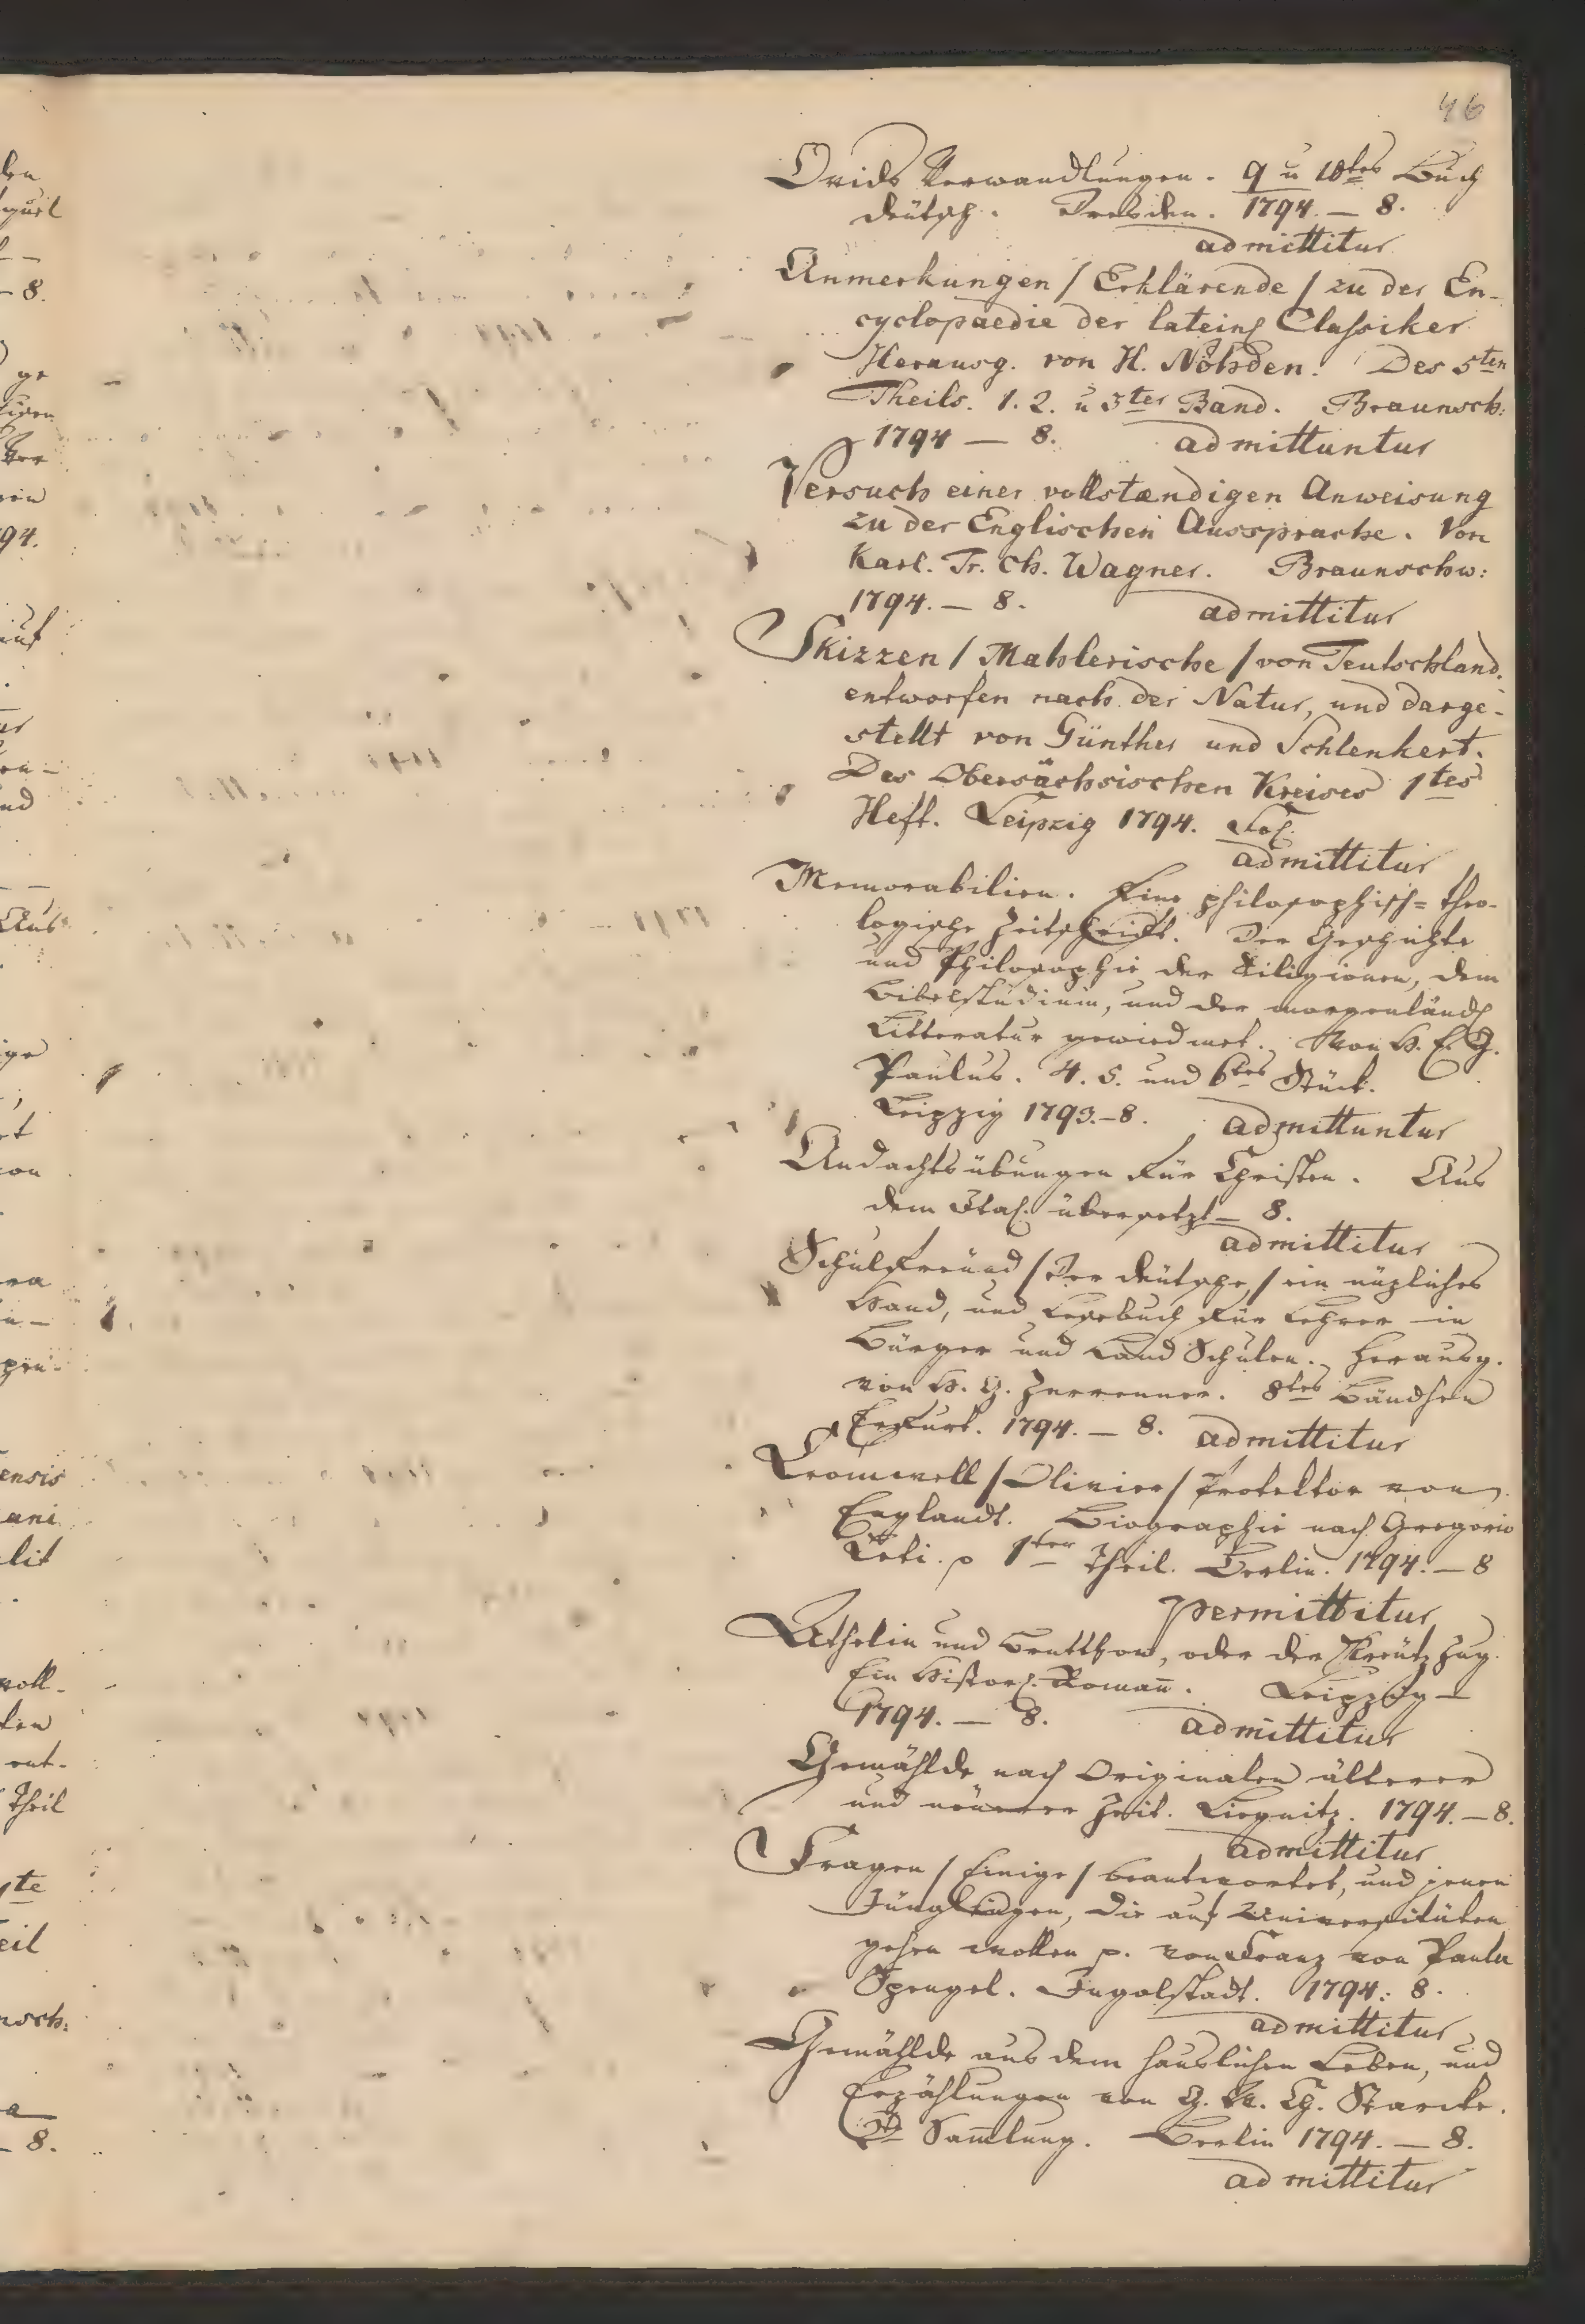 46
Ovids Verwandlungen. 9 u 10tes Buch
deutsch. Dresden. 1794. — 8.
admittitur
Anmerkungen / Erklärende / zu der En-
cyclopaedie der latein Classiker
Herausg. von H. Nöhden. Des 5ten
Theils. 1. 2. u 3ter Band. Braunsch:
1794 — 8. admittuntur
Versuch einer vollstændigen Anweisung
zu der Englischen Aussprache. Von
Karl. Fr. Ch. Wagner. Braunschw:
1794. — 8. admittitur
Skizzen / Mahlerische / von Teutschland.
entworfen nach der Natur, und darge-
stellt von Günther und Schlenkert.
Des Obersächsischen Kreises 1tes
Heft. Leipzig 1794. Fol.
admittitur
Memorabilien. Eine philosophisch= theo-
logische Zeitschrift. Der Geschichte
und Philosophie der Religionen, dem
Bibelstudium, und der morgenländ
Litteratur gewiedmet. Von H. E. G.
Paulus. 4. 5. und 6tes Stück.
Leipzig 1793.–8. admittuntur
Andachtsübungen für Christen. Aus
dem Ital. übersetzt — 8.
admittitur
Schulfreund / Der deutsche / ein nüzliches
Hand, und Lesebuch für Lehrer in
Bürger und Land Schulen. Herausg.
von H. G. Zerrenner. 8tes Bändchen
Erfurt. 1794. — 8. admittitur
Cromwell / Olivier / Protektor von
Englandt. Biographie nach Gregorio
Leti. p 1ter Theil. Berlin. 1794. — 8
permittitur
und , oder der Kreutzzug.
Ein Histor. Roman. Leipzig —
1794. — 8. admittitur
Gemählde nach Originalen älterer
und neuerer Zeit. Liegnitz. 1794. — 8.
admittitur
Fragen / Einige / beantwortet, und jenen
Jünglingen, die auf Universitäten
gehen wollen p. von Franz von Paula
Spengel. Ingolstadt. 1794. 8.
admittitur
Gemählde aus dem häuslichen Leben, und
Erzählungen von G. W. Ch. Starcke.
2te Sammlung. Berlin 1794. — 8.
admittitur